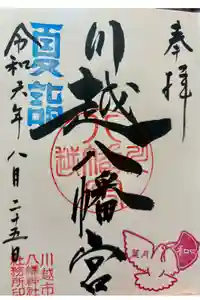 奉拝
川越八幡宮
夏詣
令和六年八月二十五日
川越市
八幡神社
社務所印
葉月